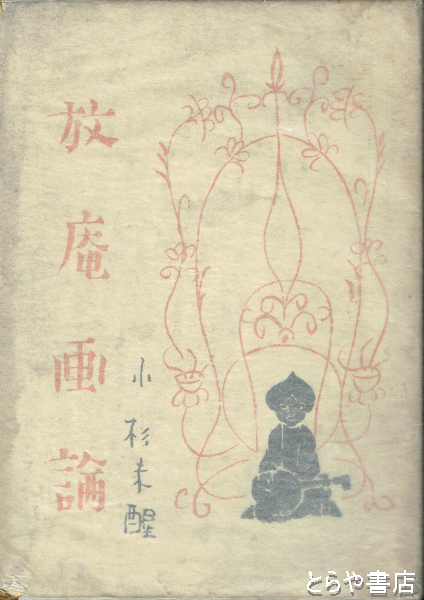 放庵画論
小杉未醒
とらや書店